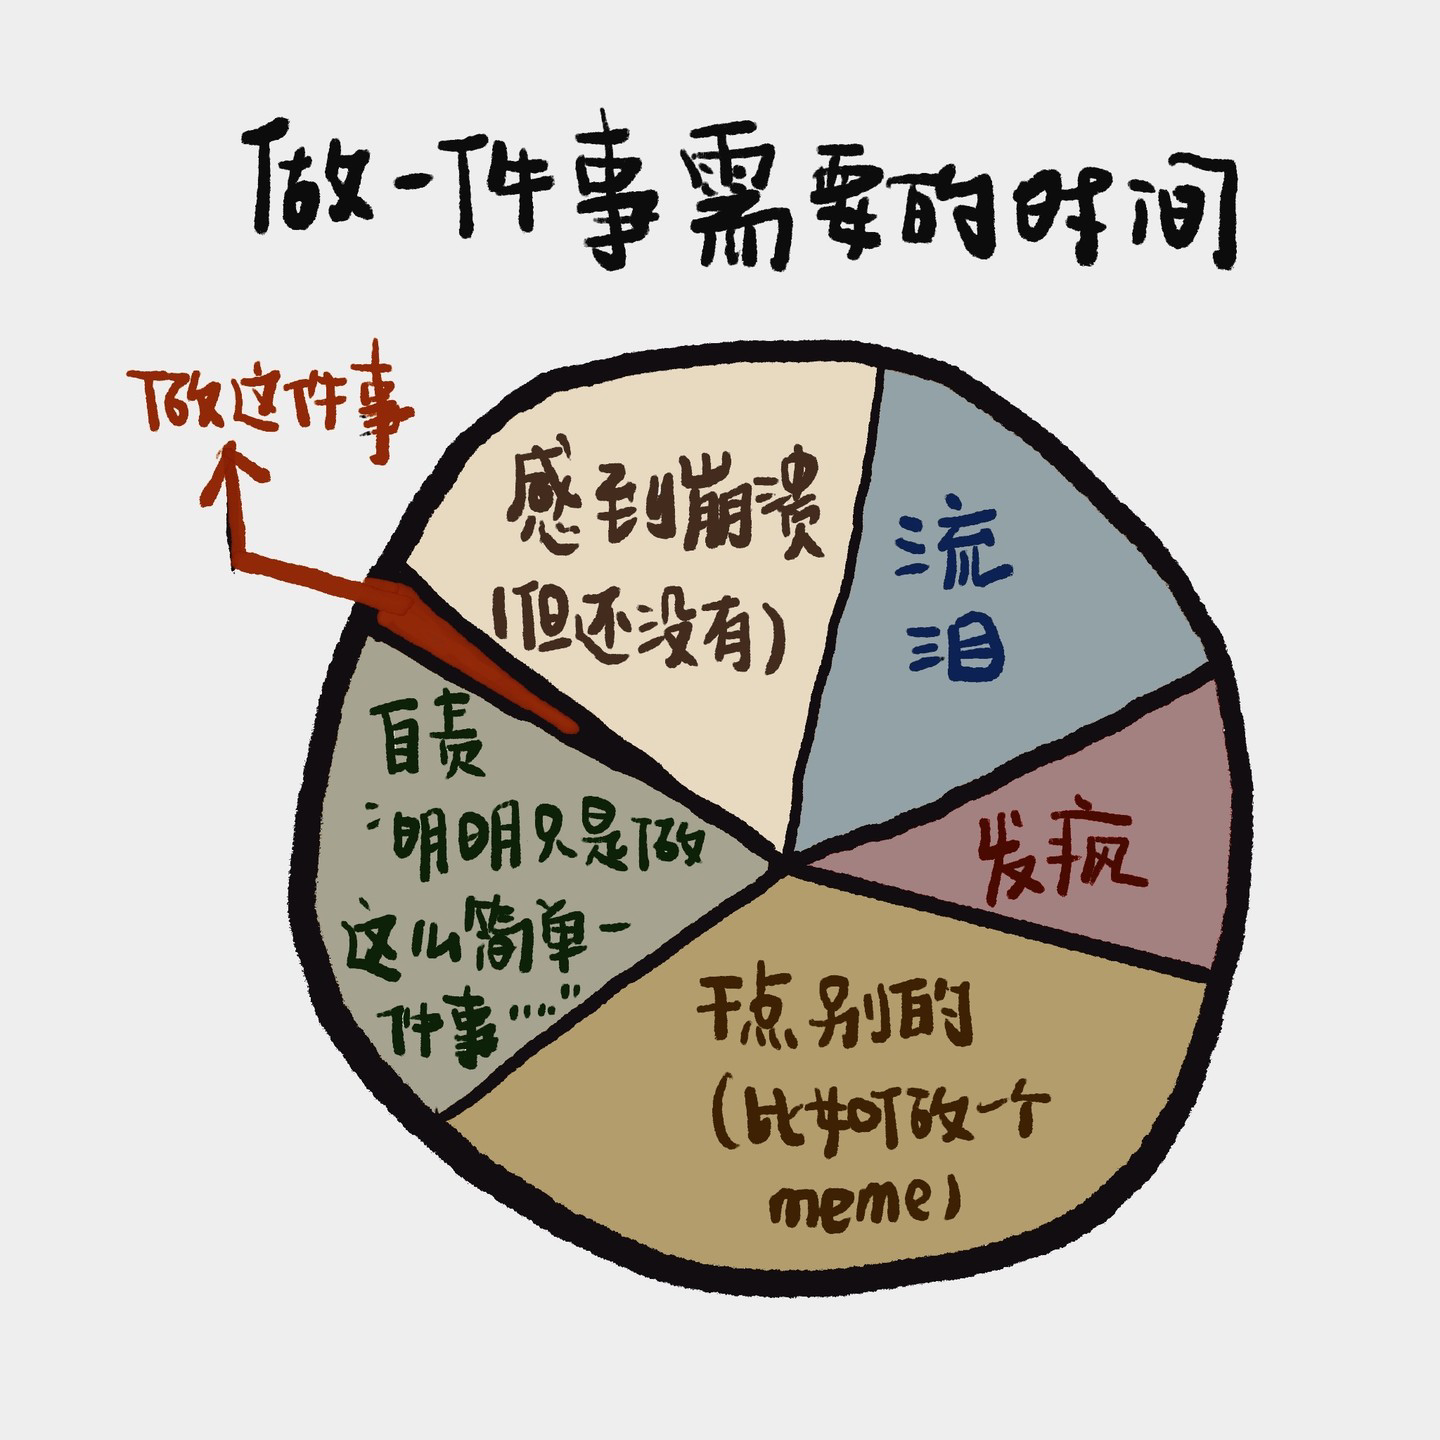 做一件事需要的时间
做这件事
感到崩溃
(但还没有)
流
泪
发疯
自责
:明明只是做
这么简单一
件事……”
干点别的
(比如做一个
meme)